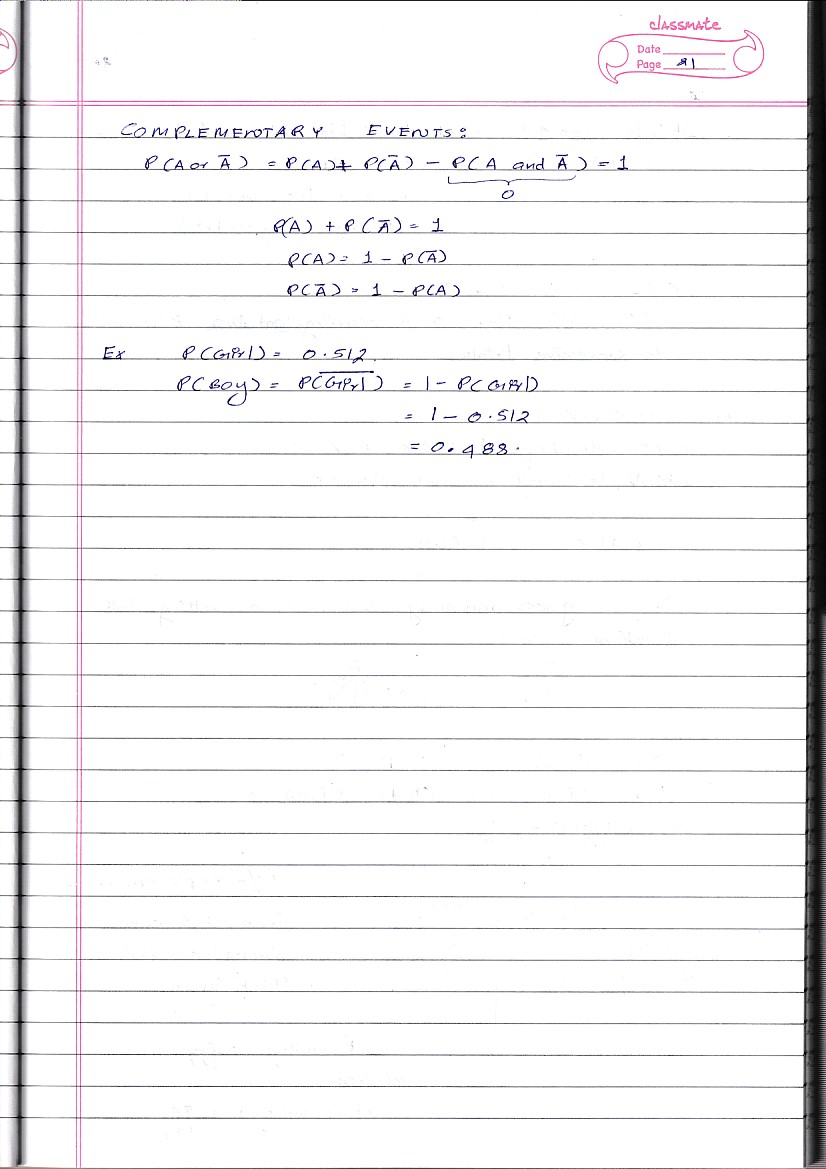 classmate
Date
Page 21
COMPLEMENTARY EVENTS:
P(A or Ā) = P(A) + P(Ā) - P(A and Ā) = 1
0
P(A) + P(Ā) = 1
P(A) = 1 - P(Ā)
P(Ā) = 1 - P(A)
Ex P(Girl) = 0.512.
P(Boy) = P(G̅i̅r̅l̅) = 1 - P(Girl)
= 1 - 0.512
= 0.488.